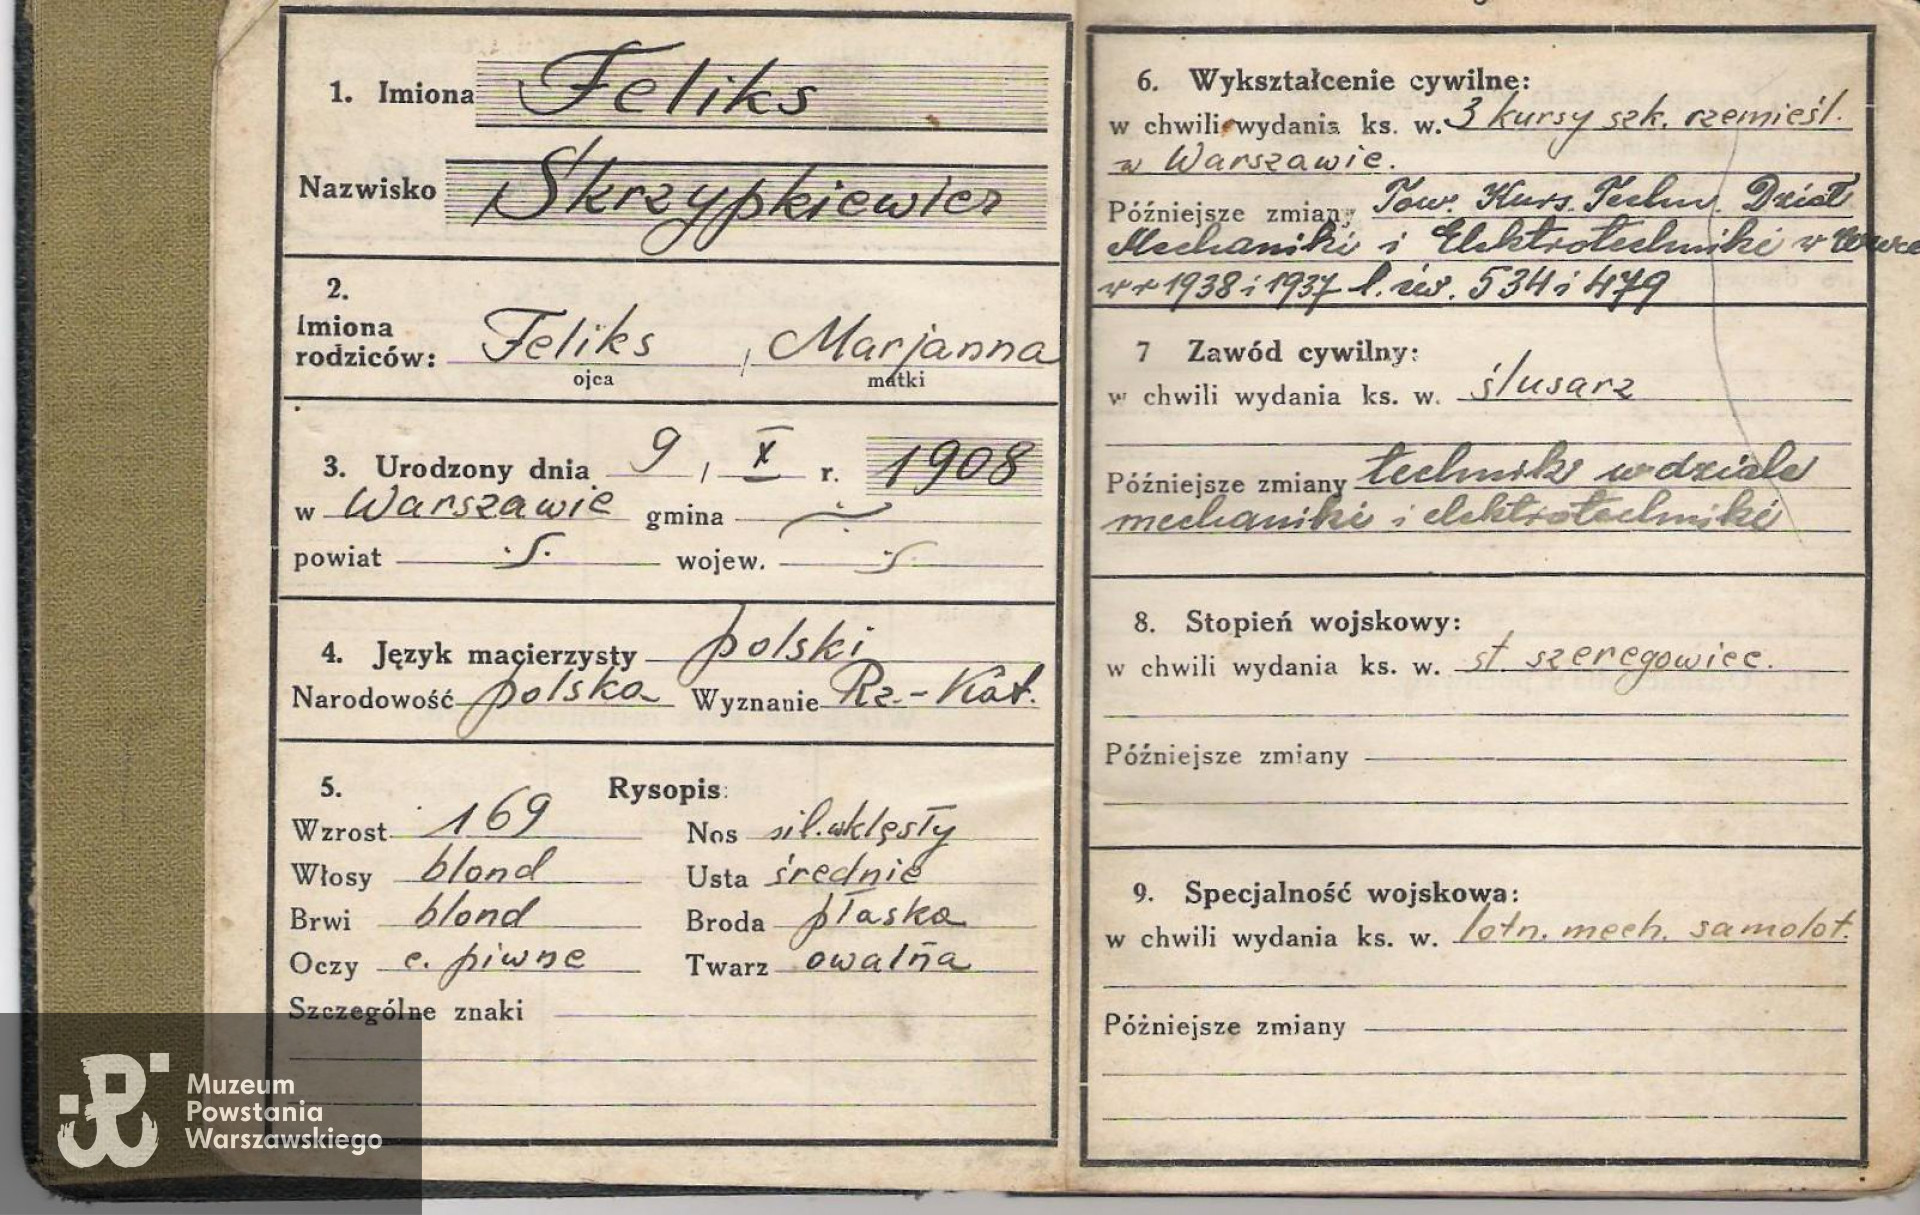 1. Imiona Feliks
Nazwisko Skrzypkiewicz
2.
Imiona
rodziców: Feliks, Marjanna
ojca matki
3. Urodzony dnia 9 / X r. 1908
w Warszawie gmina
powiat wojew.
4. Język macierzysty polski
Narodowość polska Wyznanie Rz.-Kat.
5. Rysopis:
Wzrost 169 Nos sil. wklęsły
Włosy blond Usta średnie
Brwi blond Broda płaska
Oczy c. piwne Twarz owalna
Szczególne znaki
6. Wykształcenie cywilne:
w chwili wydania ks. w. 3 kursy szk. rzemieśl.
w Warszawie.
Późniejsze zmiany Tow. Kurs. Techn. Dział
Mechaniki i Elektrotechniki w
w r 1938 i 1937 l. św. 534 i 479
7 Zawód cywilny:
w chwili wydania ks. w. ślusarz
Późniejsze zmiany technik w dziale
mechaniki i elektrotechniki
8. Stopień wojskowy:
w chwili wydania ks. w. st. szeregowiec.
Późniejsze zmiany
9. Specjalność wojskowa:
w chwili wydania ks. w. lotn. mech. samolot.
Późniejsze zmiany
Muzeum
Powstania
Warszawskiego